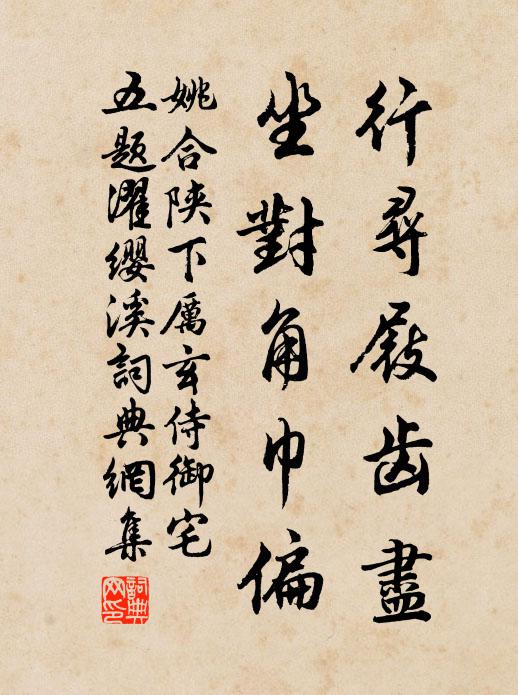 行尋屐齒盡
坐對角巾偏
姚合陝下厲玄侍御宅
五题濯纓溪詞典網集
詞典網印